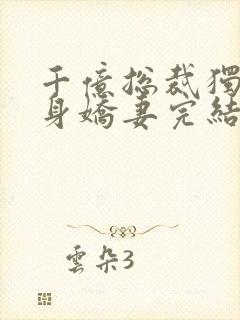 千億總裁獨
身嬌妻完結
雲朵3